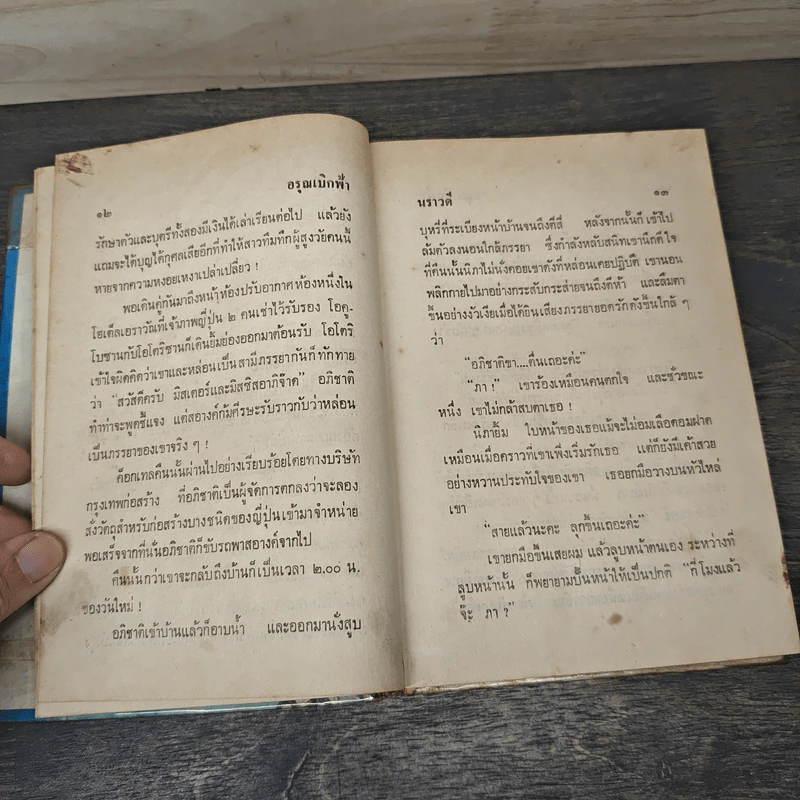 อรุณเบิกฟ้า
๑๒
รักษาตัวและบุตรีทั้งสองมีเงินได้เล่าเรียนต่อไป แล้วยัง
แถมจะได้บุญได้กุศลเสียอีกที่ทำให้สาวทึมทึกผู้สูงวัยคนนี้
หายจากความหงอยเหงาเปล่าเปลี่ยว !
พอเดินคู่กันมาถึงหน้าห้องปรับอากาศห้องหนึ่งใน
โฮเต็ลเอราวัณที่เจ้าภาพญี่ปุ่น ๒ คนเช่าไว้รับรอง โอคู-
โบซานกับโอโตริซานก็เดินยิ้มย่องออกมาต้อนรับ โอโตริ
เข้าใจผิดคิดว่าเขาและหล่อนเป็นสามีภรรยากันก็ทักทาย
ว่า “สวัสดีครับ มิสเตอร์และมิสซิสอาภิจ๊าด” อภิชาติ
ทำท่าจะพูดชี้แจง แต่สอางค์ก้มศีรษะรับราวกับว่าหล่อน
เป็นภรรยาของเขาจริง ๆ !
ค็อกเทลคืนนั้นผ่านไปอย่างเรียบร้อยโดยทางบริษัท
กรุงเทพก่อสร้าง ที่อภิชาติเป็นผู้จัดการตกลงว่าจะลอง
สั่งวัตถุสำหรับก่อสร้างบางชนิดของญี่ปุ่นเข้ามาจำหน่าย
พอเสร็จจากที่นั่นอภิชาติก็ขับรถพาสอางค์จากไป
คืนนั้นกว่าเขาจะกลับถึงบ้านก็เป็นเวลา ๒.๐๐ น.
ของวันใหม่ !
อภิชาติเข้าบ้านแล้วก็อาบน้ำ และออกมานั่งสูบ
นราวดี
๑๓
บุหรี่ที่ระเบียงหน้าบ้านจนถึงตีสี่ หลังจากนั้นก็เข้าไป
ล้มตัวลงนอนใกล้ภรรยา ซึ่งกำลังหลับสนิทเขานึกดีใจ
ที่คืนนั้นนิภาไม่นั่งคอยเขาดังที่หล่อนเคยปฏิบัติ เขานอน
พลิกกายไปมาอย่างกระสับกระส่ายจนถึงตีห้า และลืมตา
ขึ้นอย่างงัวเงียเมื่อได้ยินเสียงภรรยายอดรักดังขึ้นใกล้ ๆ
ว่า
“อภิชาติขา....ตื่นเถอะค่ะ”
“ภา !” เขาร้องเหมือนคนตกใจ และชั่วขณะ
หนึ่ง เขาไม่กล้าสบตาเธอ !
นิภายิ้ม ใบหน้าของเธอแม้จะไม่อมเลือดอมฝาด
เหมือนเมื่อคราวที่เขาเพิ่งเริ่มรักเธอ แต่ก็ยังมีเค้าสวย
อย่างหวานประทับใจของเขา เธอยกมือวางบนหัวไหล่
เขา
“สายแล้วนะคะ ลุกขึ้นเถอะค่ะ”
เขายกมือขึ้นเสยผม แล้วลูบหน้าตนเอง ระหว่างที่
ลูบหน้านั้น ก็พยายามปั้นหน้าให้เป็นปกติ “กี่โมงแล้ว
จ๊ะ ภา ?”